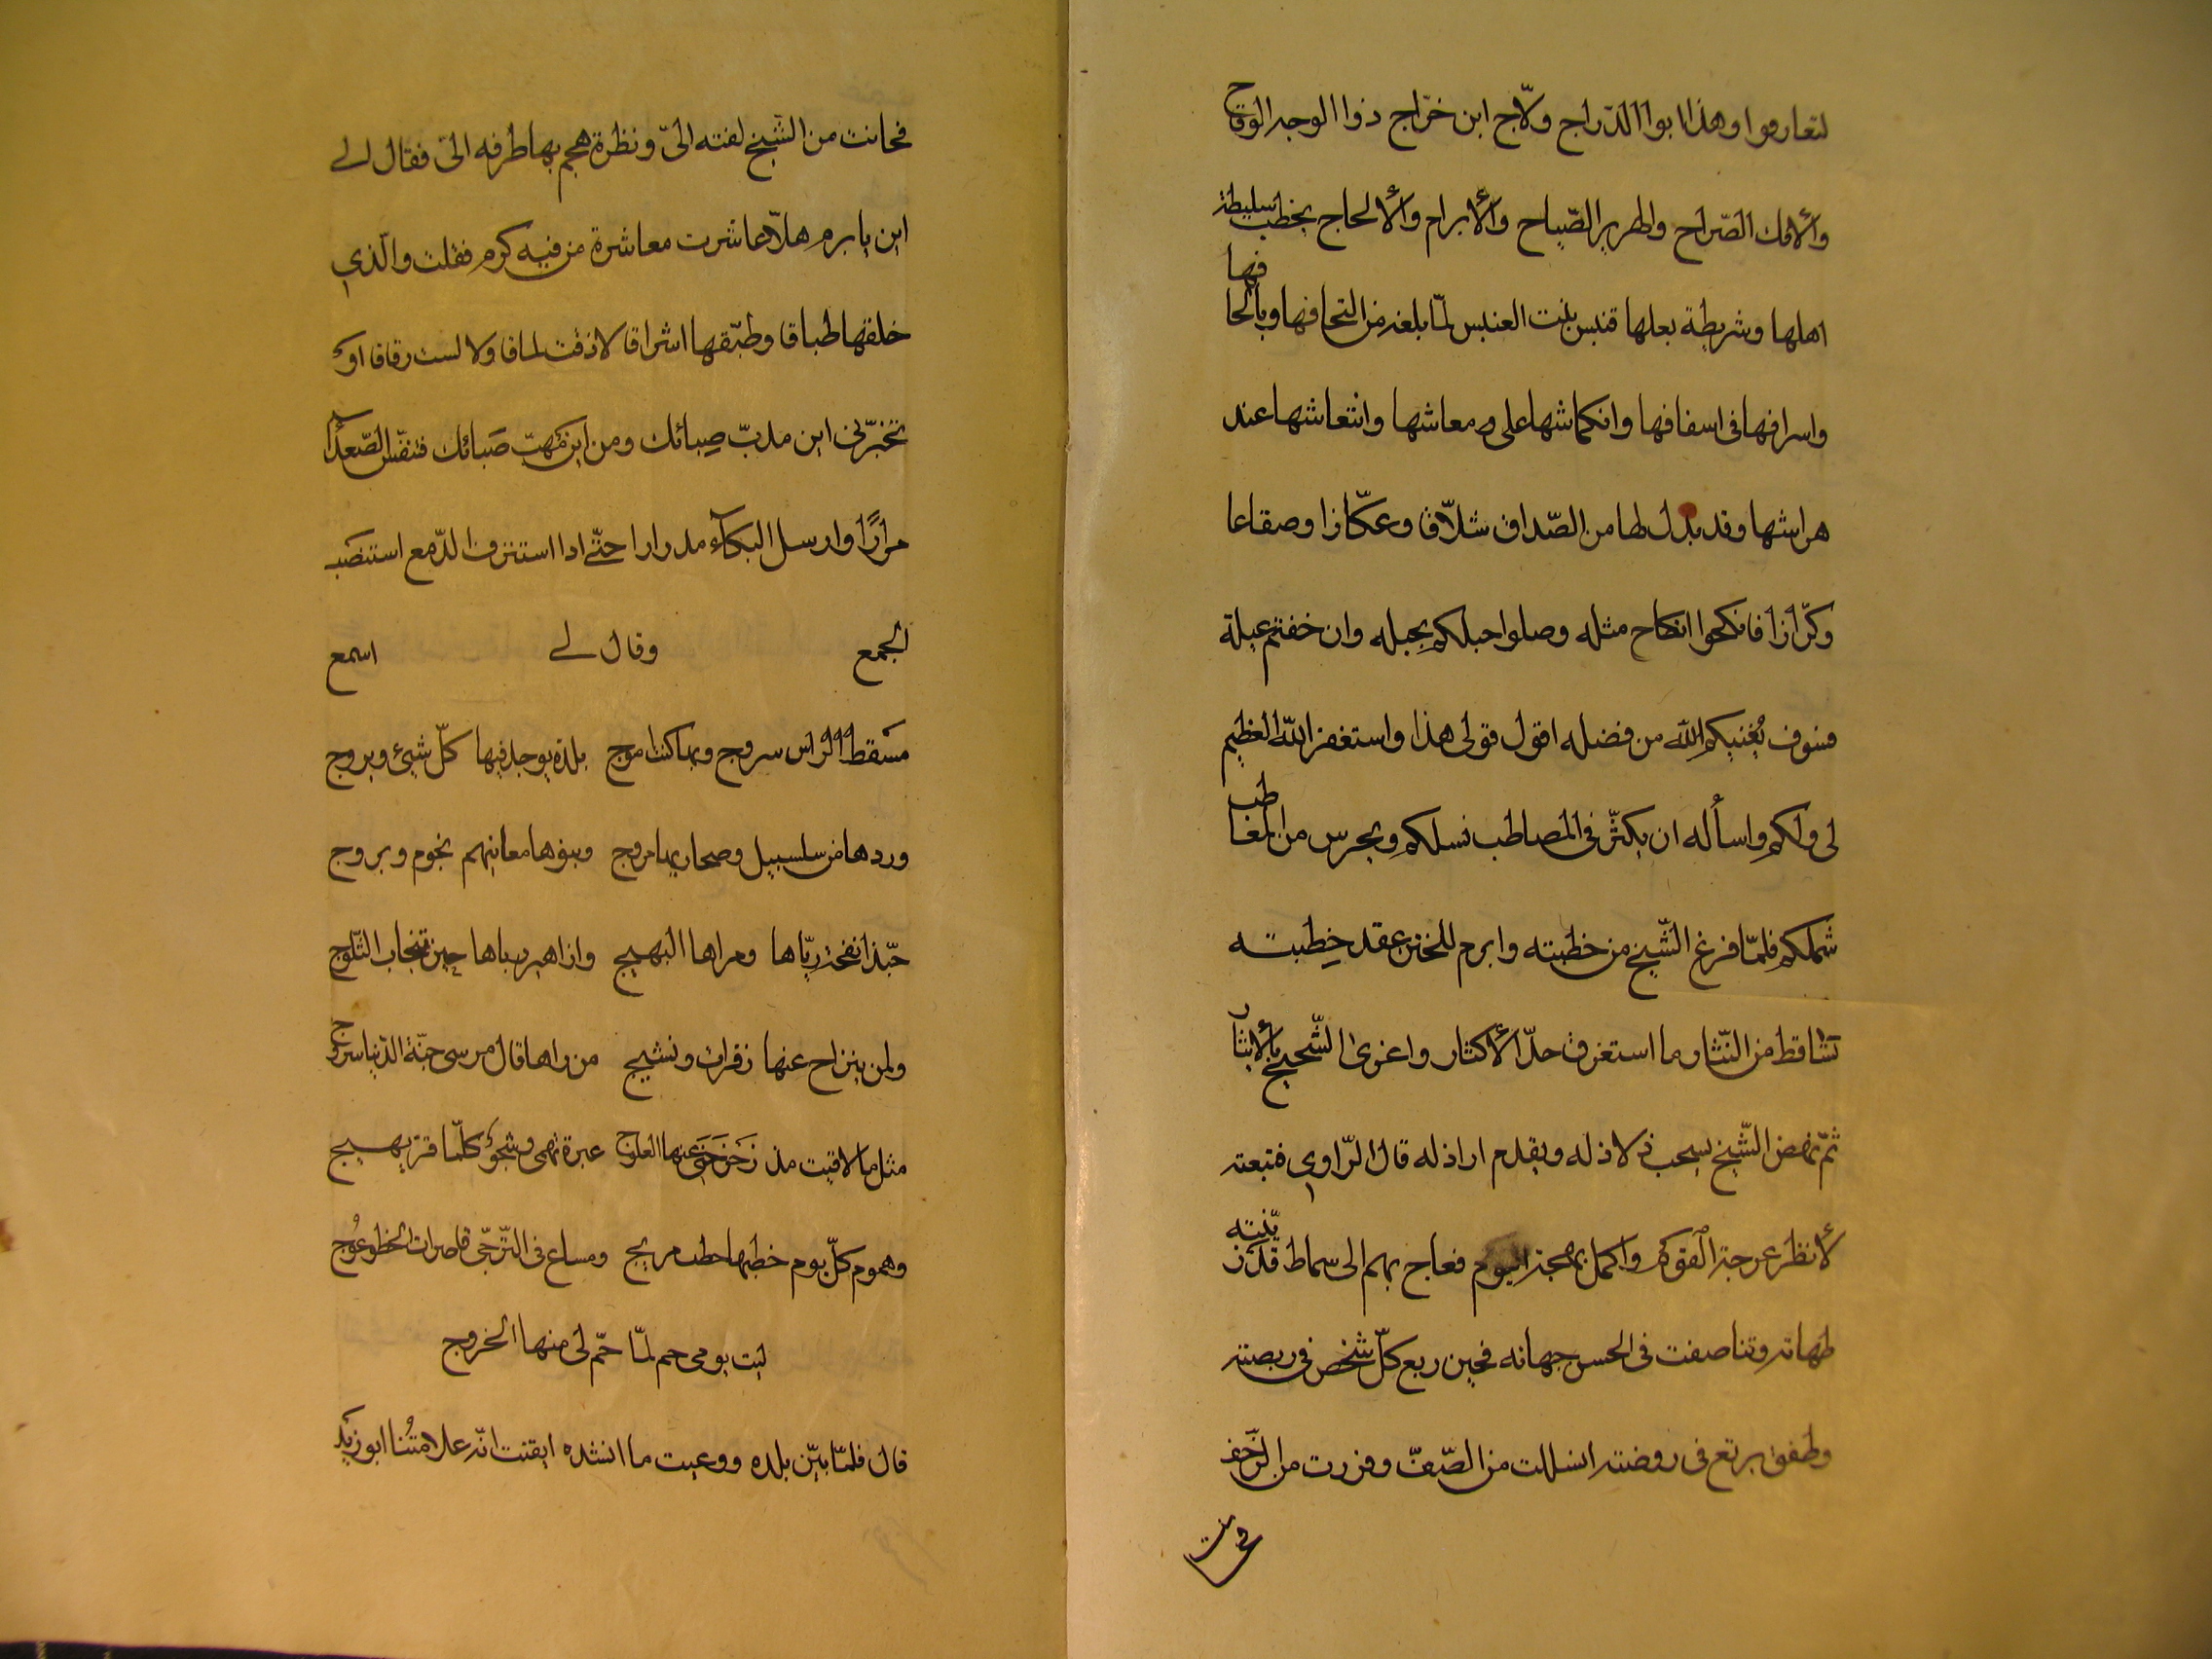 لتعارفوا وهذا ابوا الدّراج ولّاج ابن خرّاج ذوا الوجه الوقاح
والأفك الصّراح والهرير الصّياح والأبرام والألحاح يخطب سليطة
اهلها وشريطة بعلها قنبس بنت العنبس لمّا بلغه من التحافها وبالحافها
واسرافها فى اسفافها وانكماشها على معاشها وانتعاشها عند
هراشها وقد بذل لها من الصّداق شلّاقا وعكّازا وصقاعا
وكرّازا فانكحوا انكاح مثله وصلوا حبلكم بحبله وان خفتم عيلة
فسوف يُغنيكم اللّٰه من فضله اقول قولى هذا واستغفر اللّه العظيم
لى ولكم واسأله ان يكثّر فى المصاطب نسلكم ويحرس من المعاطب
شملكم فلمّا فرغ الشّيخ من خطبته وابرم للختن عقد خِطبته
تساقط من النّثار ما استغرق حدّ الأكثار واغرى الشّحيح بالأيثار
ثمّ نهض الشّيخ يسحب ذلاذله ويقدم اراذله قال الرّاوي فتبعته
لأنظر عرجة القوم واكمل بهجة اليوم فعاج بهم الى سماط قد زيّنته
طهاته وتناصفت فى الحسن جهاته فحين ربع كلّ شخص فى ربضته
وطفق يرتع فى روضته انسللت من الصّفّ وفررت من الزّحف
فحانت
فحانت من الشّيخ لفتة الىّ ونظرة هجم بها طرفه الىّ فقال لے
اين يا برم هلّا عاشرت معاشرة من فيه كرم فقلت والّذي
خلقها طباقا وطبّقها اشراقا لا ذقت لماقا ولا لست رقاقا او
تخبّرنى اين مدبّ صِبائك ومن اين مَهبّ صَبائك فتنفّس الصّعدآ
مرارًا وارسل البكآء مدرارا حتّے اذا استنزف الدّمع استنصت
الجمع وقال لے اسمع
مَسقط الرّاس سروج وبها كنت اموج بلدة يوجد فيها كلّ شيئ ويروج
وردها من سلسبيل وصحاريها مروج وبنوها ومغانيهم نجوم وبروج
حبّذا نفحة ريّاها ومراها البهيج وازاهير رباها حين تنجاب الثّلوج
ولمن ينزاح عنها زفرات ونشيج من راها قال مرسى جنّة الدّنيا سروج
مثل ما لاقيت مذ زَحزَحَنى عنها العلوج عبرة تهمى وشجو كلّما قرّ يهيج
وهموم كلّ يوم خطبها خطب مريج ومساع فى التّرجّى قاصرات الخطو عُوج
ليت يومى حم لمّا حُمّ لى منها الخروج
قال فلمّا بيّن بلده ووعيت ما انشده ايقنت انّه علامتُنا ابو زيد